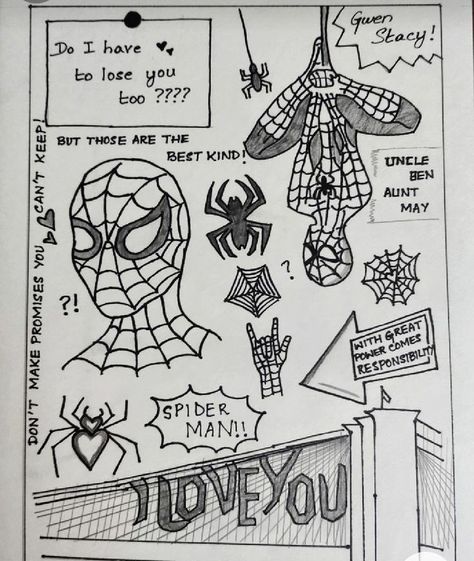 Do I have
to lose you
too ????
Gwen
Stacy!
BUT THOSE ARE THE
BEST KIND!
DON'T MAKE PROMISES YOU CAN'T KEEP!
UNCLE
BEN
AUNT
MAY
?
?!
WITH GREAT
POWER COMES
RESPONSIBILITY
SPIDER
MAN!!
I LOVE YOU